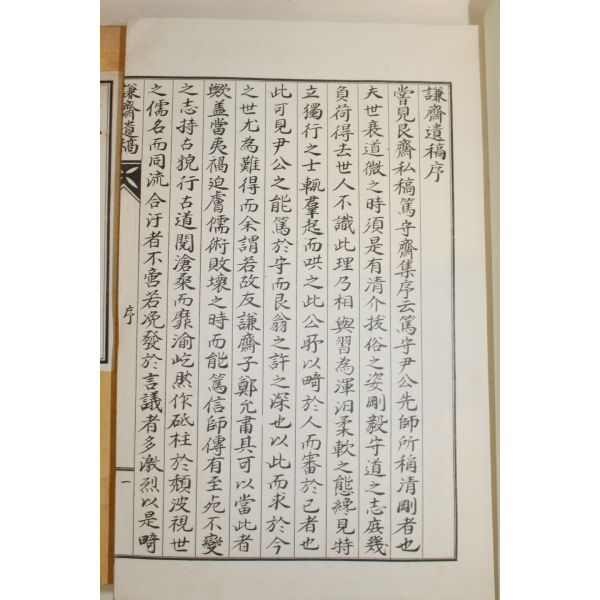 謙齋遺稿序
嘗見艮齋私稿篤守齋集序云篤守尹公先師所稱清剛者也
夫世衰道微之時須是有清介拔俗之姿剛毅守道之志庶幾
負荷得去世人不識此理乃相與習為渾汨柔軟之態纔見特
立獨行之士輒羣起而哄之此公所以畸於人而審於己者也
此可見尹公之能篤於守而艮翁之許之深也以此而求於今
之世尤為難得而余謂若故友謙齋子鄭允肅其可以當此者
歟盖當夷禍迫膚儒術敗壞之時而能篤信師傳有至死不變
之志持古貌行古道閱滄桑而靡渝屹然作砥柱於頹波視世
之儒名而同流合汙者不啻若浼發於言議者多激烈以是畸
謙齋遺稿
序
一